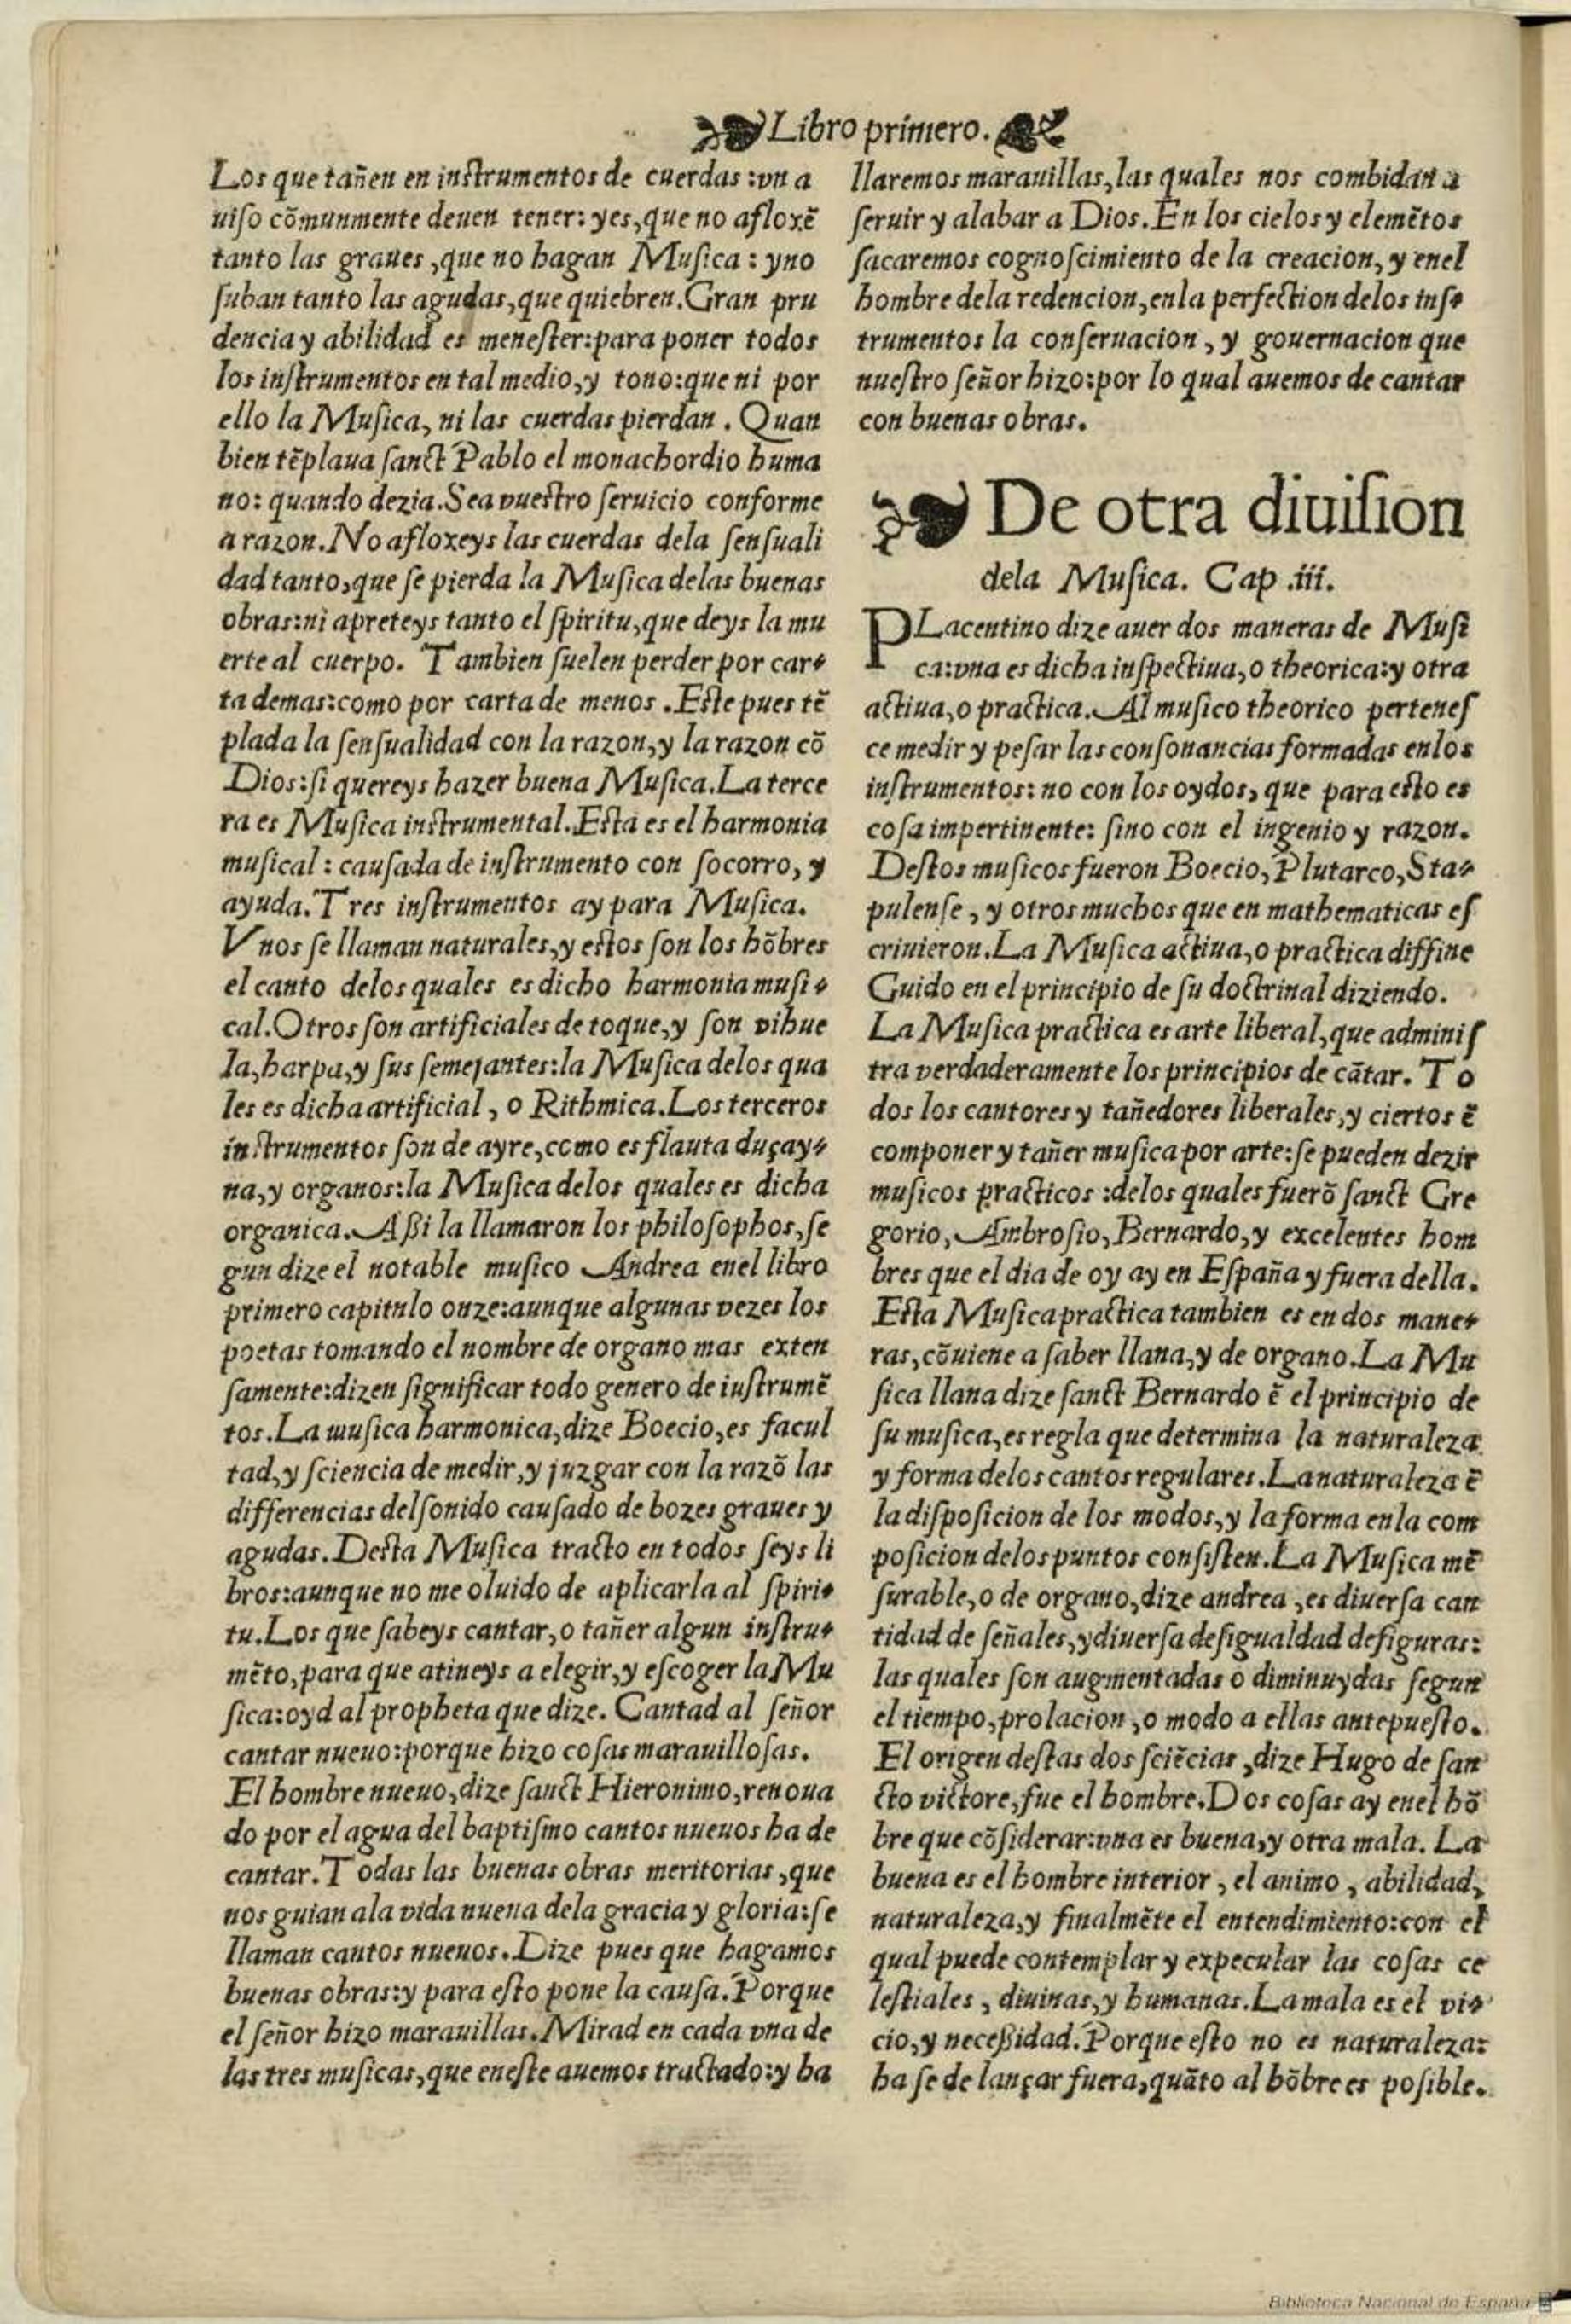 Libro primero.
Los que tañen en inſtrumentos de cuerdas:vn a
uiſo cõmunmente deuen tener: yes, que no afloxẽ
tanto las graues, que no hagan Muſica: yno
ſuban tanto las agudas, que quiebren. Gran pru
dencia y abilidad es meneſter:para poner todos
los inſtrumentos en tal medio, y tono:que ni por
ello la Muſica, ni las cuerdas pierdan. Quan
bien tẽplaua ſanct Pablo el monachordio huma
no: quando dezia. Sea vueſtro ſeruicio conforme
a razon. No afloxeys las cuerdas dela ſenſuali
dad tanto, que ſe pierda la Muſica delas buenas
obras:ni apreteys tanto el ſpiritu, que deys la mu
erte al cuerpo. Tambien ſuelen perder por car-
ta demas:como por carta de menos. Eſte pues tẽ
plada la ſenſualidad con la razon, y la razon cõ
Dios:ſi quereys hazer buena Muſica. La terce
ra es Muſica inſtrumental. Eſta es el harmonia
muſical: cauſada de inſtrumento con ſocorro, y
ayuda. Tres inſtrumentos ay para Muſica.
Vnos ſe llaman naturales, y eſtos ſon los hõbres
el canto delos quales es dicho harmonia muſi-
cal. Otros ſon artificiales de toque, y ſon vihue
la, harpa, y ſus ſemejantes:la Muſica delos qua
les es dicha artificial, o Rithmica. Los terceros
inſtrumentos ſon de ayre, como es flauta duçay-
na, y organos:la Muſica delos quales es dicha
organica. Aßi la llamaron los philoſophos, ſe
gun dize el notable muſico Andrea enel libro
primero capitulo onze:aunque algunas vezes los
poetas tomando el nombre de organo mas exten
ſamente:dizen ſignificar todo genero de iuſtrumẽ
tos. La muſica harmonica, dize Boecio, es facul
tad, y ſciencia de medir, y juzgar con la razõ las
differencias del ſonido cauſado de bozes graues y
agudas. Deſta Muſica tracto en todos ſeys li
bros:aunque no me oluido de aplicarla al ſpiri-
tu. Los que ſabeys cantar, o tañer algun inſtru-
mẽto, para que atineys a elegir, y eſcoger la Mu
ſica:oyd al propheta que dize. Cantad al ſeñor
cantar nueuo:porque hizo coſas marauilloſas.
El hombre nueuo, dize ſanct Hieronimo, renoua
do por el agua del baptiſmo cantos nueuos ha de
cantar. Todas las buenas obras meritorias, que
nos guian ala vida nueua dela gracia y gloria:ſe
llaman cantos nueuos. Dize pues que hagamos
buenas obras:y para eſto pone la cauſa. Porque
el ſeñor hizo marauillas. Mirad en cada vna de
las tres muſicas, que eneſte auemos tractado:y ha
llaremos marauillas, las quales nos combidan a
ſeruir y alabar a Dios. En los cielos y elemẽtos
ſacaremos cognoſcimiento de la creacion, y enel
hombre dela redencion, enla perfection delos inſ-
trumentos la conſeruacion, y gouernacion que
nueſtro ſeñor hizo:por lo qual auemos de cantar
con buenas obras.
De otra diuiſion
dela Muſica. Cap .iii.
PLacentino dize auer dos maneras de Muſi
ca:vna es dicha inſpectiua, o theorica:y otra
actiua, o practica. Al muſico theorico perteneſ
ce medir y peſar las conſonancias formadas enlos
inſtrumentos: no con los oydos, que para eſto es
coſa impertinente: ſino con el ingenio y razon.
Deſtos muſicos fueron Boecio, Plutarco, Sta-
pulenſe, y otros muchos que en mathematicas eſ
criuieron. La Muſica actiua, o practica diffine
Guido en el principio de ſu doctrinal diziendo.
La Muſica practica es arte liberal, que adminiſ
tra verdaderamente los principios de cãtar. To
dos los cantores y tañedores liberales, y ciertos ẽ
componer y tañer muſica por arte:ſe pueden dezir
muſicos practicos :delos quales fuerõ ſanct Gre
gorio, Ambroſio, Bernardo, y excelentes hom
bres que el dia de oy ay en Eſpaña y fuera della.
Eſta Muſica practica tambien es en dos mane-
ras, cõuiene a ſaber llana, y de organo. La Mu
ſica llana dize ſanct Bernardo ẽ el principio de
ſu muſica, es regla que determina la naturaleza
y forma delos cantos regulares. La naturaleza ẽ
la diſpoſicion de los modos, y la forma enla com
poſicion delos puntos conſiſten. La Muſica mẽ
ſurable, o de organo, dize andrea, es diuerſa can
tidad de ſeñales, y diuerſa deſigualdad de figuras:
las quales ſon augmentadas o diminuydas ſegun
el tiempo, prolacion, o modo a ellas antepueſto.
El origen deſtas dos ſciẽcias, dize Hugo de ſan
cto victore, fue el hombre. Dos coſas ay enel hõ
bre que cõſiderar:vna es buena, y otra mala. La
buena es el hombre interior, el animo, abilidad,
naturaleza, y finalmẽte el entendimiento:con el
qual puede contemplar y expecular las coſas ce
leſtiales, diuinas, y humanas. La mala es el vi-
cio, y neceßidad. Porque eſto no es naturaleza:
ha ſe de lançar fuera, quãto al hõbre es poſible.
Biblioteca Nacional de España